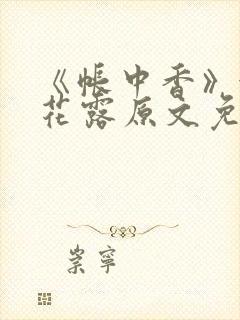 《帐中香》
花露原文免
崇宁